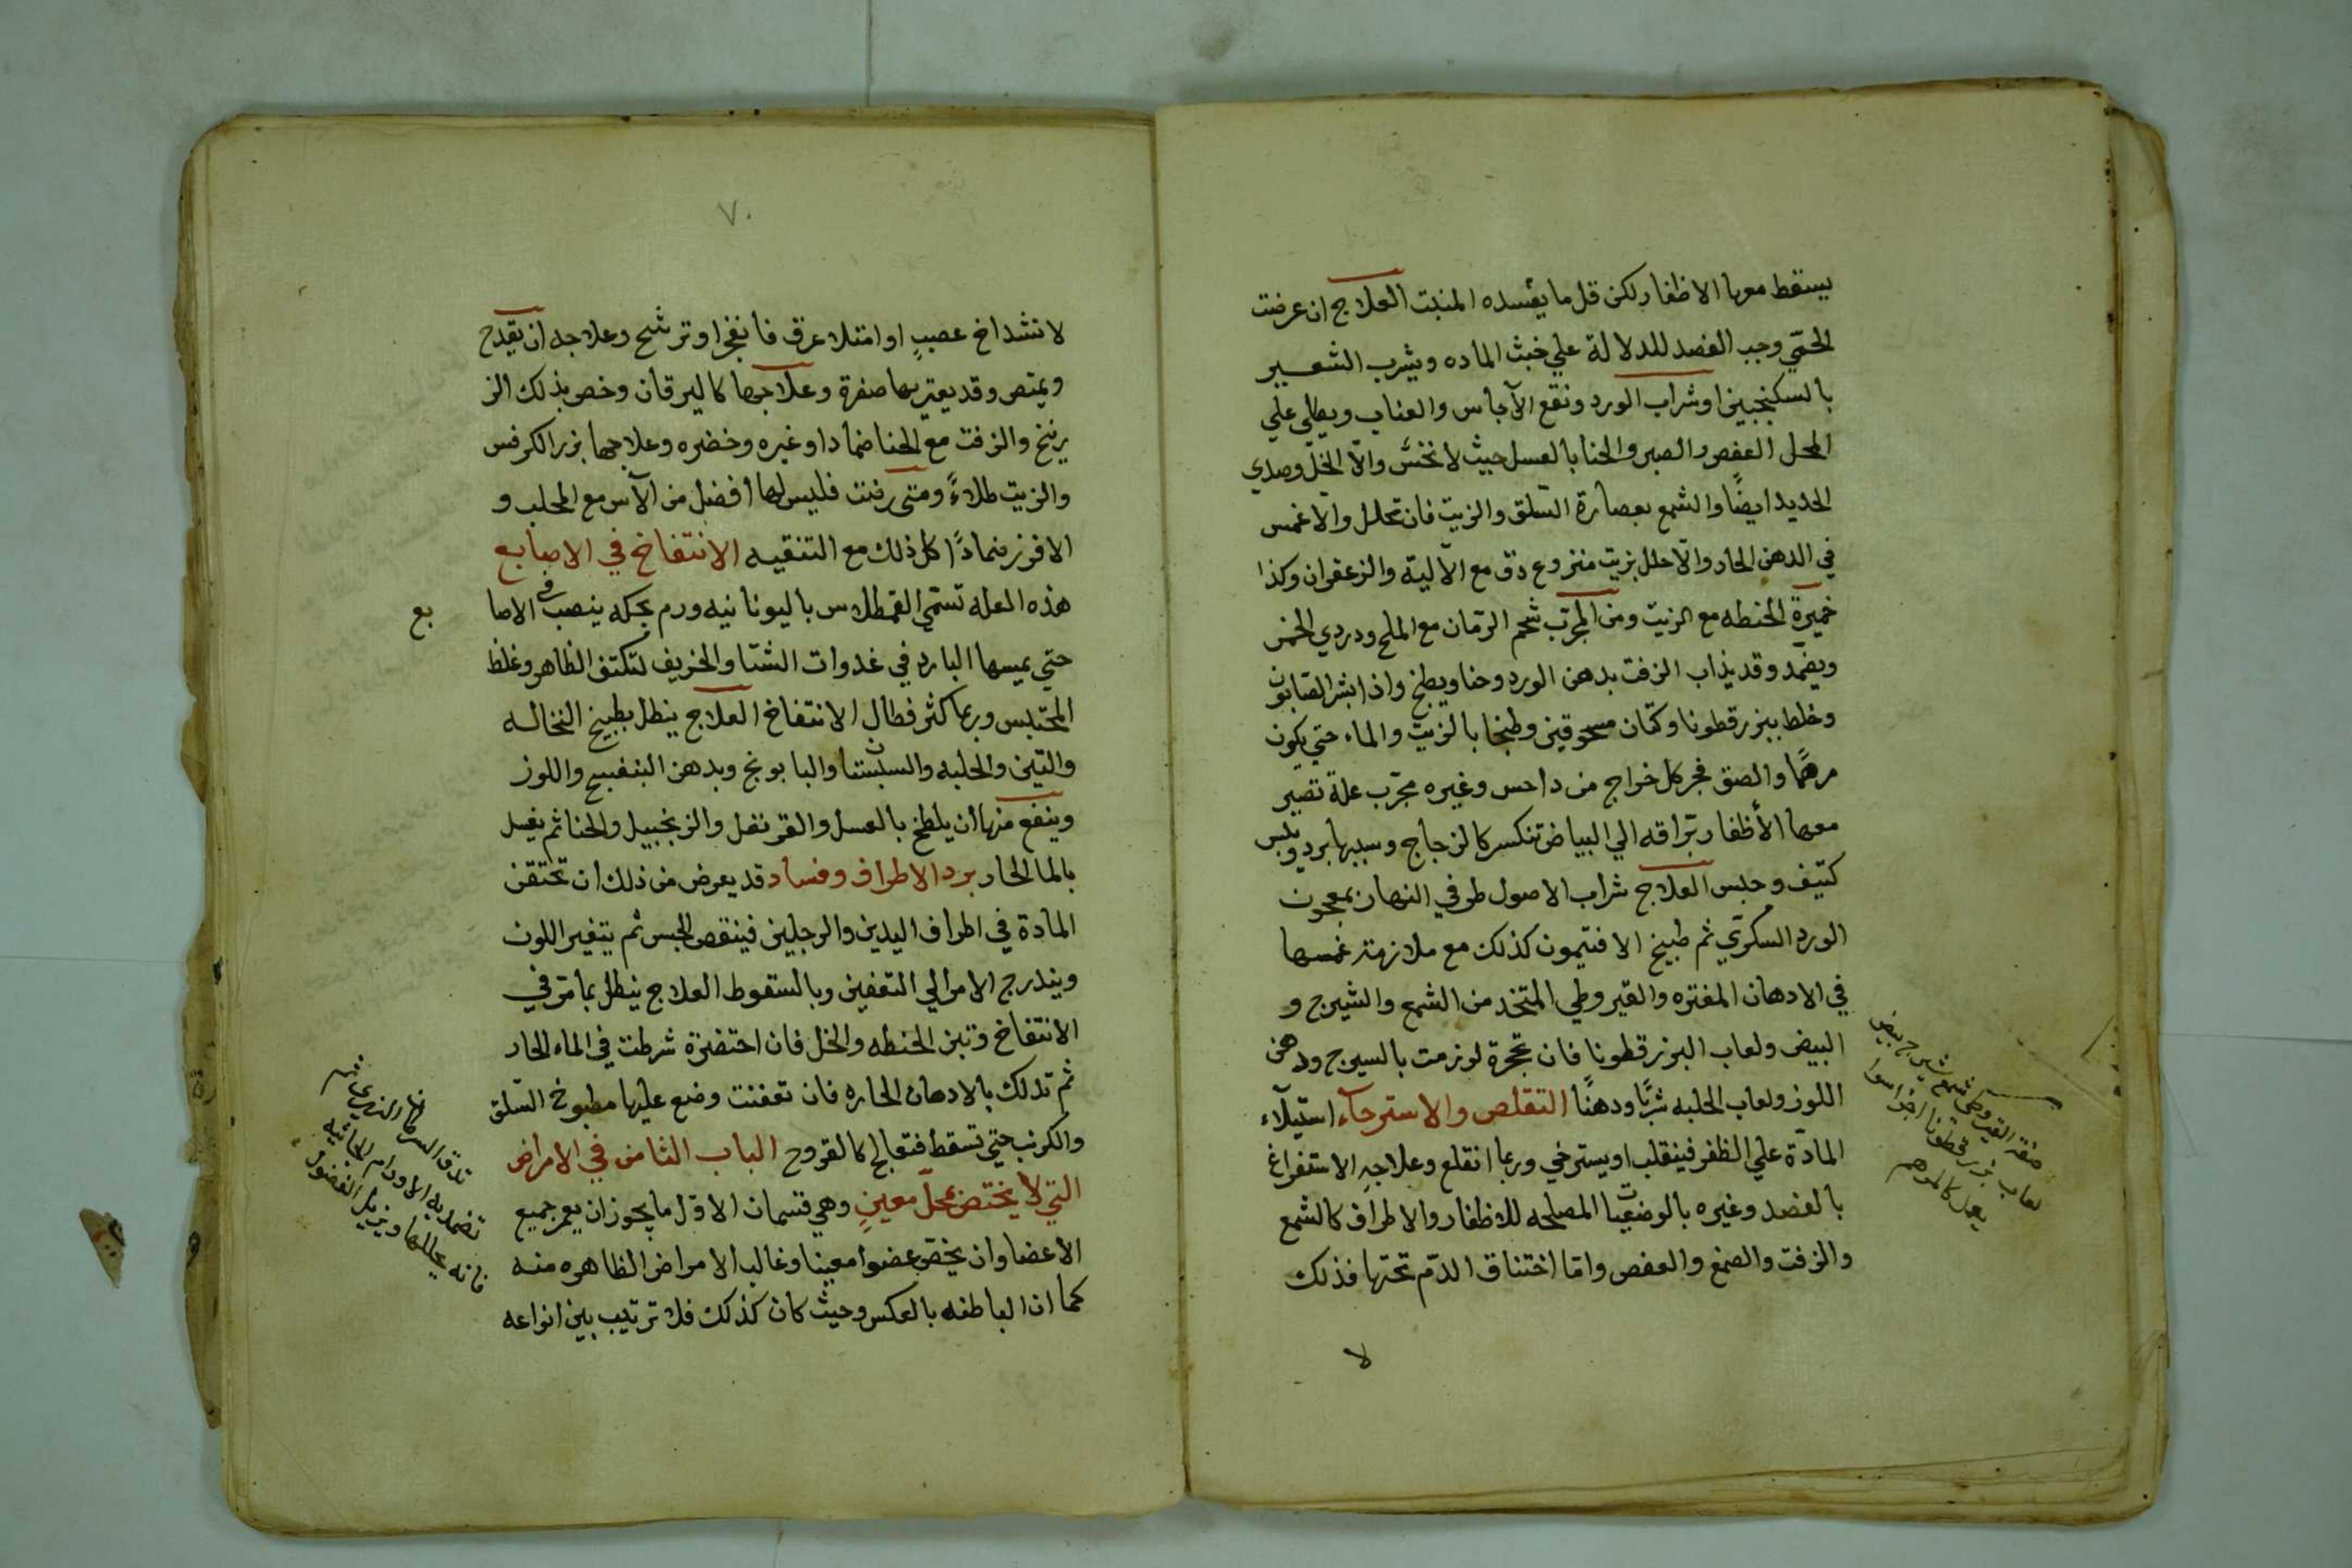 يسقط معها الاظفار لكن قل ما يفسده المنبت العلاج ان عرضت
الحمّي وجب الفصد للدلالة علي خبث الماده ويشرب الشعير
بالسكنجبين او شراب الورد ونقع الآجاس والعناب ويطلى علي
المحل العفص والصبر والحنا بالعسل حيث لا نخش والّا الخلّ وصدي
الحديد ايضًا والشمع بعصارة السّلق والزيت فان تحلل والّا غمس
في الدهن الحار والّا حلل بزيت منزوع دق مع الآلية والزعفران وكذا
خميرة الحنطه مع الزيت ومن المجرّب شحم الرّمان مع الملح ودردي الخمر
ويضمّد وقد يذاب الزفت بدهن الورد وحنا ويطبخ واذا بشر الصّابون
وخلط ببزر قطونا وكتّان مسحوقين وطبخا بالزيت والماء حتي يكون
مرهمًا والصق فجر كل خراج من داحس وغيره مجرّب علة تصير
معها الأظفار برّاقه الي البياض تنكسر كالزجاج وسببها برد ويبس
كثيف وحبس العلاج شراب الاصول طرفي النهار بمعجون
الورد السكرّي ثم طبيخ الافتيمون كذلك مع ملازمة غمسها
في الادهان المفتره والقيروطي المتخد من الشمع والشيرج و
البيض ولعاب البزر قطونا فان تحجرة لوزمت بالسيرج ودهن
اللوز ولعاب الحلبه شربًا ودهنًا التقلص والاسترخآء استيلآء
المادّة علي الظفر فينقلب او يسترخي وربما انقلع وعلاجه الاستفراغ
بالفصد وغيره بالوضعيات المصلحه للاظفار والاطراف كالشمع
والزفت والصمغ والعفص وامّا اختناق الدّم تحتها فذلك
لا
صفة القيروطي شمع شيرج بيض
لعاب بزر قطونا اجزا سوا
يعمل كالمرهم
٧٠
لانشداخ عصبٍ او امتلاء عرق فانفجر او ترشح وعلاجه ان يقدح
ويمتص وقد يعتريها صفرة وعلاجها كاليرقان وخص بذلك الز
رنيخ والزفت مع الحنا ضمادا وغيره وخضره وعلاجها بزر الكرفس
والزيت طلاءً ومتى رضت فليس لها افضل من الآس مع المحلب و
الافرز ضمادًا كل ذلك مع التنقيه الانتفاخ في الاصابع
هذه العله تسمّي القمطلاس باليونانيه ورم بحكه ينصب في الاصا
بع
حتي يمسها البارد في غدوات الشتا والخريف لتكثف الظاهر وغلظ
المحتبس وربما كثر فطال الانتفاخ العلاج ينطل بطبيخ النخاله
والتين والحلبه والسبستان والبابونج وبدهن البنفسج واللوز
وينفع منها ان يلطخ بالعسل والقرنفل والزنجبيل والحنا ثم يغسل
بالما الحار برد الاطراف وفساد قد يعرض من ذلك ان تحتقن
المادّة في اطراف اليدين والرجلين فينقص الحبس ثم يتغير اللون
ويندرج الامر الي التعفين وبالسّقوط العلاج ينطل بما مرّ في
الانتفاخ وتبن الحنطه والخل فان اخضرة شرطت في الماء الحار
ثم تدلك بالادهان الحاره فان تعفنت وضع عليها مطبوخ السّلق
والكرنب حتي تسقط فتعالج كالقروح الباب الثامن في الامراض
التي لا يختص بمحلّ معينٍ وهي قسمان الاوّل ما يجوز ان يعم جميع
الاعضا وان يخصّ عضوا معينا وغالب الامراض الظاهره منه
كما ان الباطنه بالعكس وحيث كان كذلك فلا ترتيب بين انواعه
تضمد به الاورام
فانه يحللها ويزيل الفضول